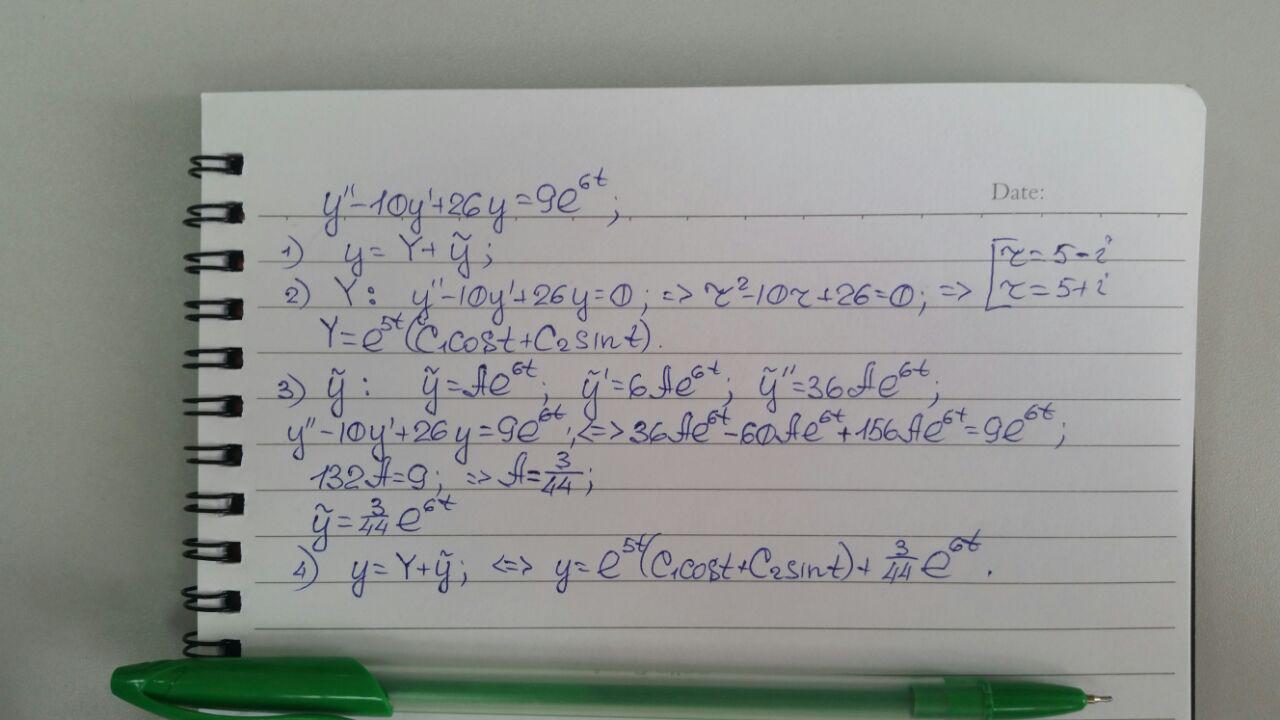 y''-10y'+26y=9e^{6t};
Date:
1) y=Y+ỹ;
2) Y: y''-10y'+26y=0; => r²-10r+26=0; => [r=5-i
r=5+i
Y=e^{5t}(C₁cost+C₂sint).
3) ỹ: ỹ=Ae^{6t}; ỹ'=6Ae^{6t}; ỹ''=36Ae^{6t};
y''-10y'+26y=9e^{6t}; <=> 36Ae^{6t}-60Ae^{6t}+156Ae^{6t}=9e^{6t};
132A=9; => A=3/44;
ỹ=3/44 e^{6t}
4) y=Y+ỹ; <=> y=e^{5t}(C₁cost+C₂sint)+3/44 e^{6t}.